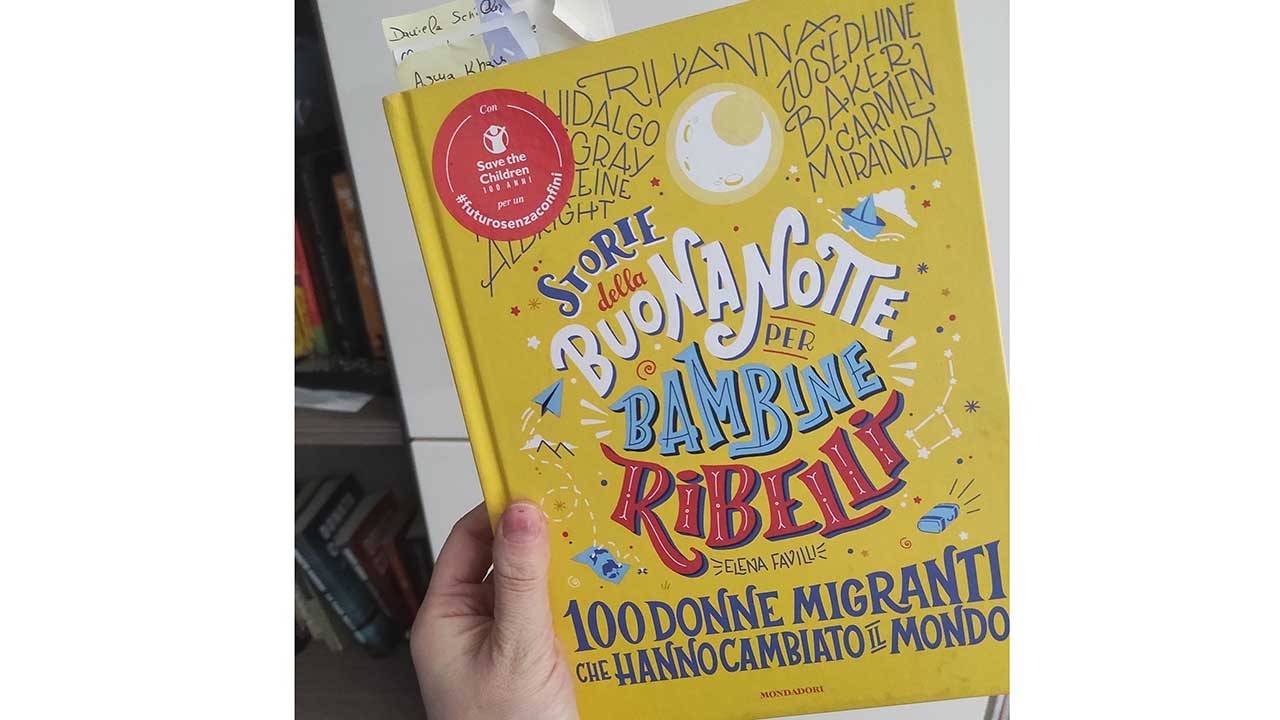 Daniela
Asma Khan
RIHANNA
HIDALGO
GRAY
LEINE
ALBRIGHT
JOSEPHINE
BAKER
CARMEN
MIRANDA
Con
Save the
Children
100 ANNI
per un
#futurosenzaconfini
STORIE
della
BUONANOTTE
PER
BAMBINE
RIBELLI
ELENA FAVILLI
100 DONNE MIGRANTI
CHE HANNO CAMBIATO IL MONDO
MONDADORI